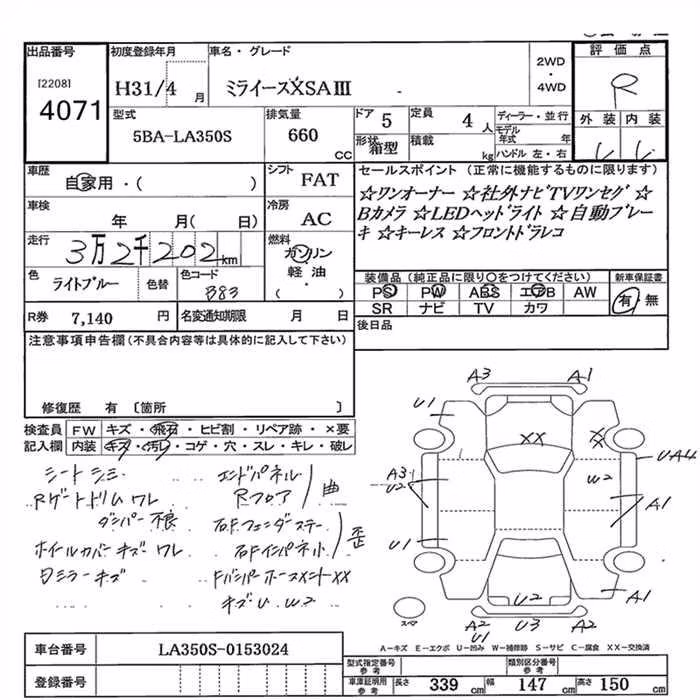 出品番号 初度登録年月 車名・グレード 2WD ・ 4WD 評価点
[2208] 4071 H31/4 月 ミライースXSAⅢ R
型式 5BA-LA350S 排気量 660 CC ドア 5 定員 4 人 ディーラー・並行 外装 内装
形状 箱型 積載 kg モデル年式 年 ハンドル 左・右
車歴 自家用・( ) シフト FAT
セールスポイント (正常に機能するものに限ります)
☆ワンオーナー ☆社外ナビTVワンセグ ☆
Bカメラ ☆LEDヘッドライト ☆自動ブレー
キ ☆キーレス ☆フロントドラレコ
車検 年 月( 日) 冷房 AC
走行 3万2千202km 燃料 ガソリン 軽油 ( ・ )
色 ライトブルー 色替 色コード B83
装備品 (純正品に限り○をつけてください) 新車保証書
PS PW ABS エアB AW 有・無
SR ナビ TV カワ
R券 7,140 円 名変通知期限 月 日
後日品
注意事項申告欄(不具合内容等は具体的に記入して下さい)
修復歴 有 〔箇所 〕
検査員 FW キズ・飛石・ヒビ割・リペア跡・×要
記入欄 内装 キズ・汚レ・コゲ・穴・スレ・キレ・破レ
シートシミ エンドパネル
Rゲートトリム ワレ Rフロア 曲
ダンパー不良 右Fフェンダーステー
ホイールカバーキズ ワレ 右Fインパネ小 歪
Dミラーキズ FバンパーホースメントXX
キズU W2
A3 A1
U1
XX XX
UA4
A3 U2 W2
A1
U1
U2 A1
スペア A2 U1 U3 A2
A-キズ E-エクボ U-凹み W-補修跡 S-サビ C-腐食 XX-交換済
車台番号 LA350S-0153024
登録番号
型式指定番号 参考 類別区分番号 参考
車庫証明用 参考 長さ 339 cm 幅 147 cm 高さ 150 cm